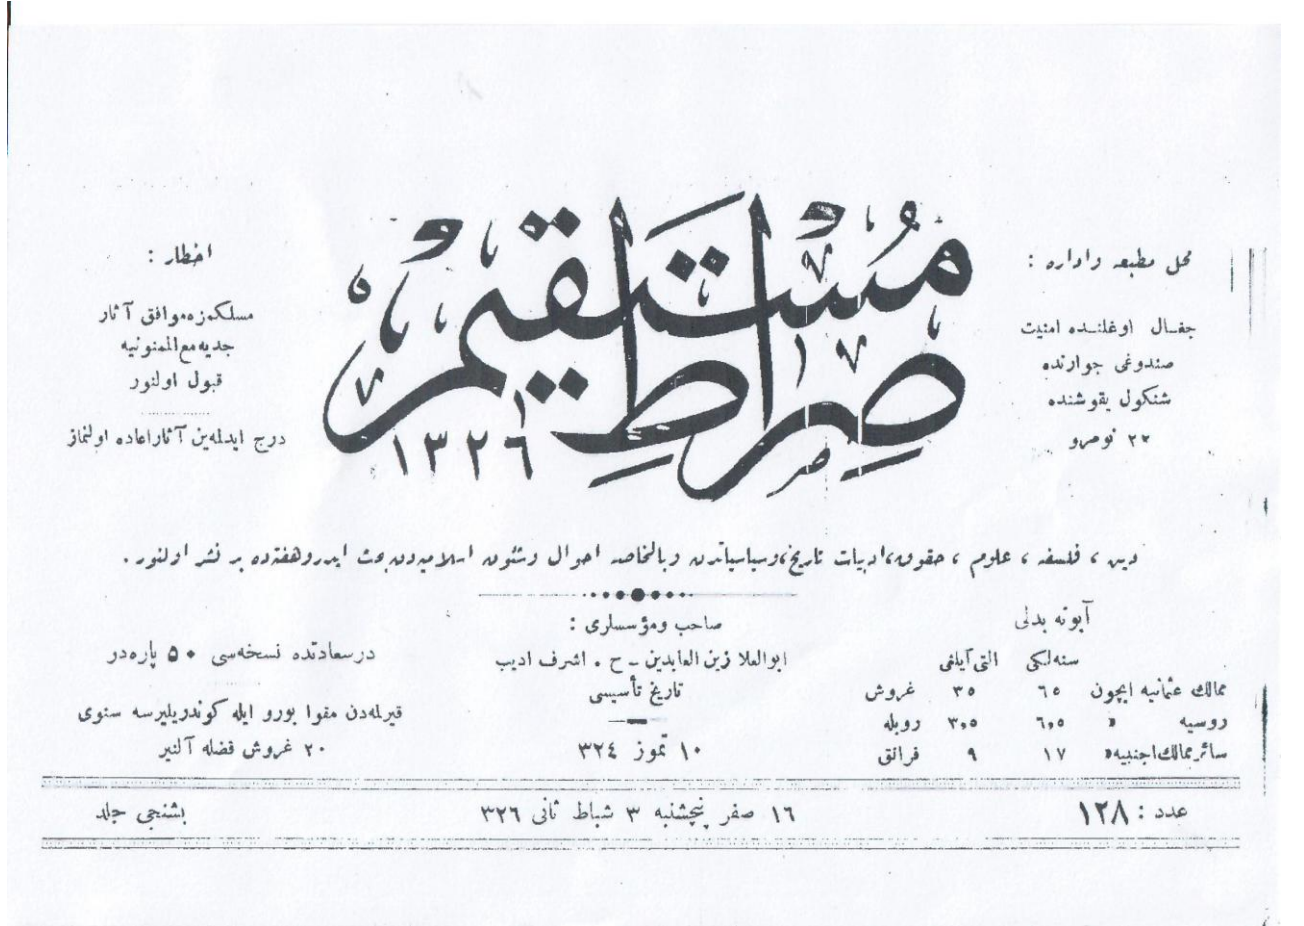 صراط مستقیم
١٣٢٦
محل مطبعه و اداره :
جغال اوغلنده امنیت
صندوغی جوارنده
شنکول یقوشنده
نومرو
اخطار :
مسلکمزه موافق آثار
جدیه مع الممنونیه
قبول اولنور
درج ایدلمه‌ین آثار اعاده اولنماز
دین ، فلسفه ، علوم ، حقوق ، ادبیات تاریخ ، وسیاسیاتدن وبالخاصه احوال وشئون اسلامیه‌دن بحث ایدر و هفته‌ده بر نشر اولنور .
آبونه بدلی
سنه‌لکی التی آیلغی
ممالك عثمانیه ایچون ٦٥ ٣٥ غروش
روسیه » ٦,٥ ٣,٥ روبله
سائر ممالك اجنبیه » ١٧ ٩ فرانق
صاحب ومؤسسلری :
ابوالعلا زین العابدین ـ ح . اشرف ادیب
تاریخ تأسیسی
١٠ تموز ٣٢٤
درسعادتده نسخه‌سی ٥٠ پاره‌در
قیرلمه‌دن مقوا بورو ایله کوندریلیرسه سنوی
٢٠ غروش فضله آلنیر
عدد : ١٢٨
١٦ صفر پنجشنبه ٣ شباط ثانی ٣٢٦
بشنجی جلد